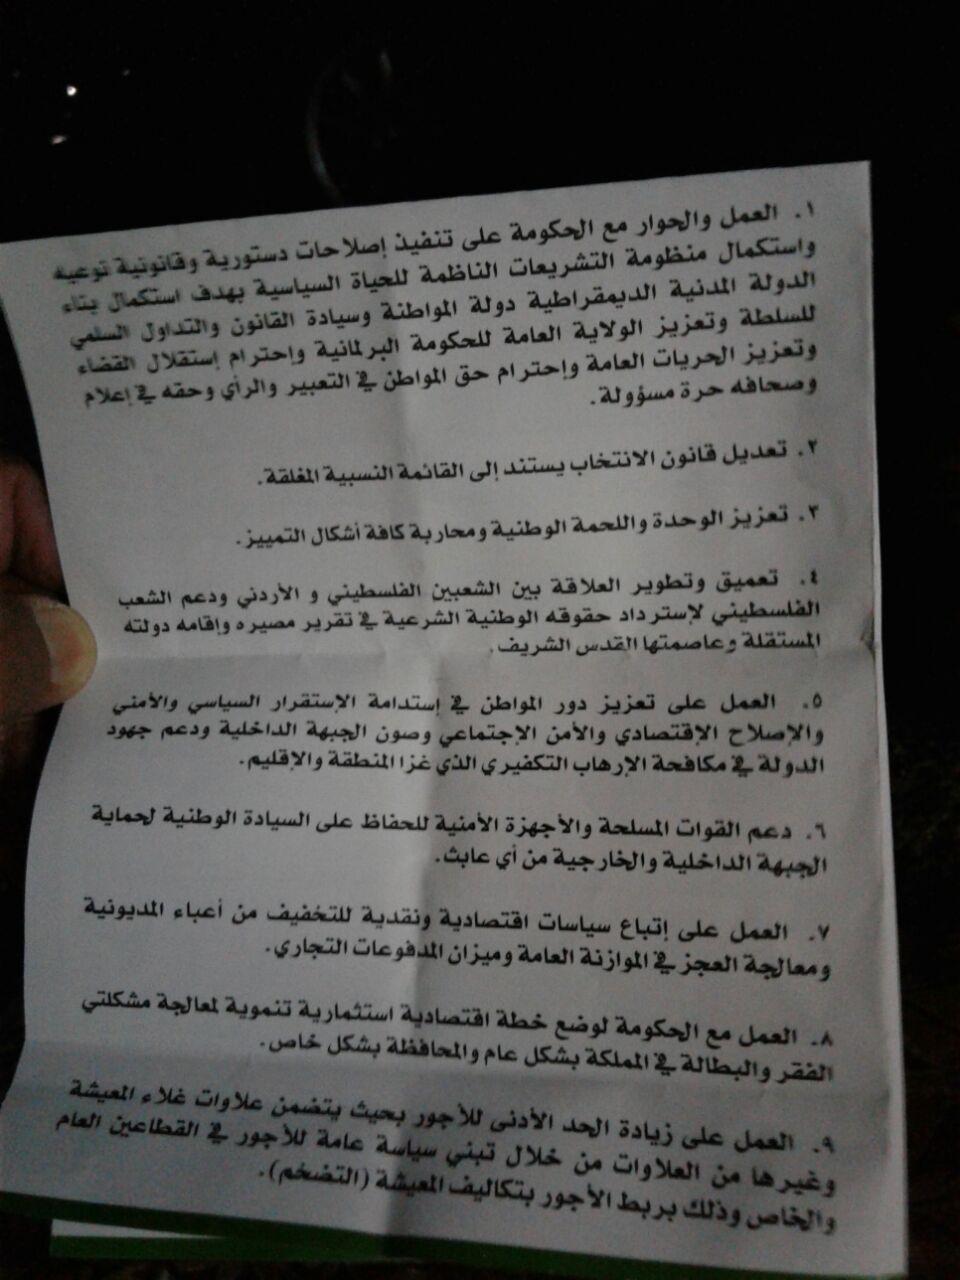 ١. العمل والحوار مع الحكومة على تنفيذ إصلاحات دستورية وقانونية نوعيه
واستكمال منظومة التشريعات الناظمة للحياة السياسية بهدف استكمال بناء
الدولة المدنية الديمقراطية دولة المواطنة وسيادة القانون والتداول السلمي
للسلطة وتعزيز الولاية العامة للحكومة البرلمانية وإحترام إستقلال القضاء
وتعزيز الحريات العامة وإحترام حق المواطن في التعبير والرأي وحقه في إعلام
وصحافه حرة مسؤولة.
٢. تعديل قانون الانتخاب يستند إلى القائمة النسبية المغلقة.
٣. تعزيز الوحدة واللحمة الوطنية ومحاربة كافة أشكال التمييز.
٤. تعميق وتطوير العلاقة بين الشعبين الفلسطيني و الأردني ودعم الشعب
الفلسطيني لإسترداد حقوقه الوطنية الشرعية في تقرير مصيره وإقامه دولته
المستقلة وعاصمتها القدس الشريف.
٥. العمل على تعزيز دور المواطن في إستدامة الإستقرار السياسي والأمني
والإصلاح الإقتصادي والأمن الإجتماعي وصون الجبهة الداخلية ودعم جهود
الدولة في مكافحة الإرهاب التكفيري الذي غزا المنطقة والإقليم.
٦. دعم القوات المسلحة والأجهزة الأمنية للحفاظ على السيادة الوطنية لحماية
الجبهة الداخلية والخارجية من أي عابث.
٧. العمل على إتباع سياسات اقتصادية ونقدية للتخفيف من أعباء المديونية
ومعالجة العجز في الموازنة العامة وميزان المدفوعات التجاري.
٨. العمل مع الحكومة لوضع خطة اقتصادية استثمارية تنموية لمعالجة مشكلتي
الفقر والبطالة في المملكة بشكل عام والمحافظة بشكل خاص.
٩. العمل على زيادة الحد الأدنى للأجور بحيث يتضمن علاوات غلاء المعيشة
وغيرها من العلاوات من خلال تبني سياسة عامة للأجور في القطاعين العام
والخاص وذلك بربط الأجور بتكاليف المعيشة (التضخم).